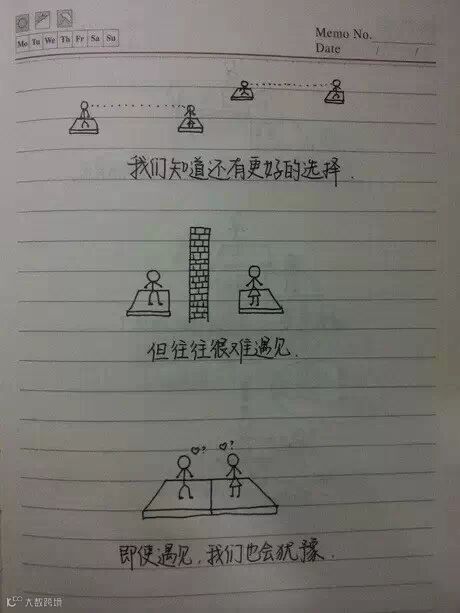 Memo No.
Mo Tu We Th Fr Sa Su
Date / /
我们知道还有更好的选择.
但往往很难遇见.
♡? ♡?
即使遇见,我们也会犹豫.
大数跨境